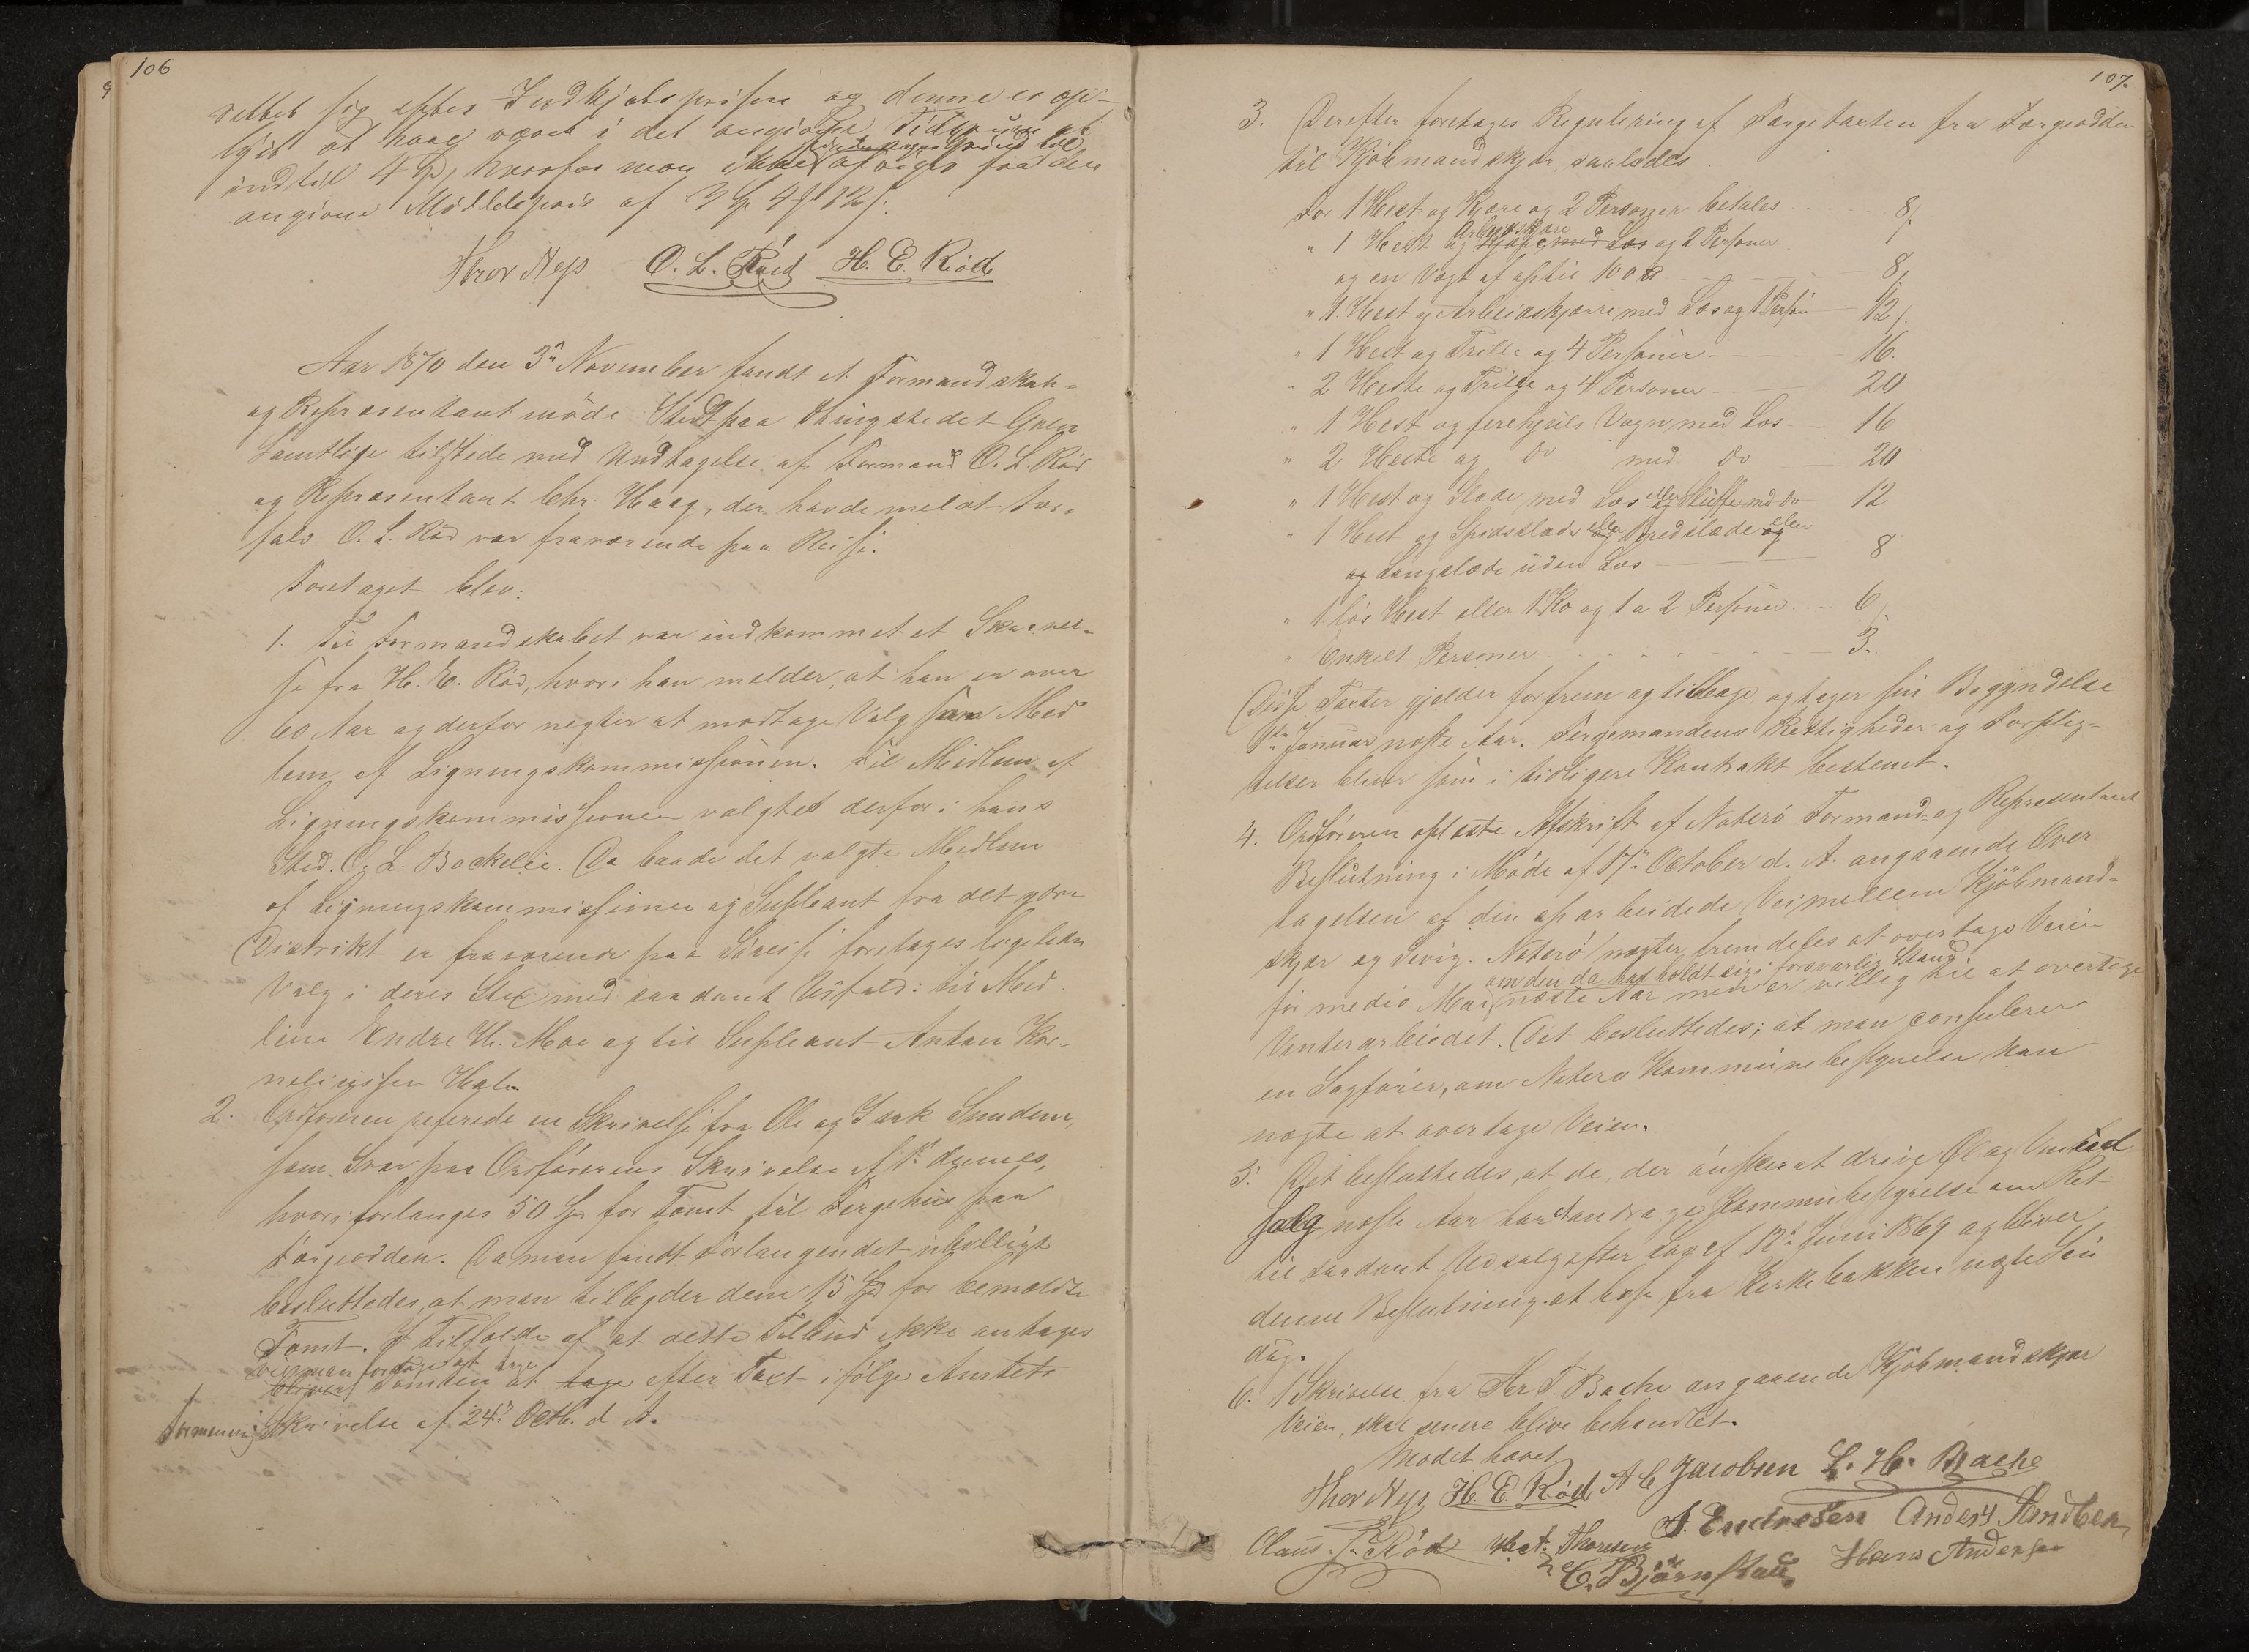 106
rettet sig efter Indkjøbsprisen og denne er op-
lyst at have været i det angivne Tidsrum
indtil 4 Sp, hvorfor man ikke finder nogen Grund til at afvige fra den
angivne Middelspris af 3 Sp 4 /
Thor Nes O. L. Röed H. E. Röd
Aar 1870 den 3die November fandt et Formandskab-
og Repræsentantmöde Sted paa Thingstedet Grøn
Samtlige tilstede med Undtagelse af Formand O. L. Röd
og Repræsentant Chr. Haag, der havde meldt For-
fald. O. L. Röd var fraværende paa Reise.
Foretaget blev:
1. Til Formandskabet var indkommet et Skrivel-
se fra H. E. Röd, hvori han melder, at han er over
60 Aar og derfor negter at modtage Valg som Med
lem af Ligningskommissionen. Til Medlem af
Ligningskommissionen valgtes derfor i hans
Sted. O. L. Backelie. Da baade det valgte Medlem
af Ligningskommissionen og Supleant fra det
Distrikt er fraværende paa Söreise foretages ligeledes
Valg i deres Sted med saadant Udfald: til Med
lem Endre H. Moe og til Supleant Anton Kor-
neliussen Holm
2. Ordföreren referede en Skrivelse fra Ole og Isak Sundene,
som Svar paa Ordförerens Skrivelse af 1ste dennes,
hvori forlanges 50 Spd for Tomt til Færgehus paa
Færgeodden. Da man fandt Forlangendet ubilligt
besluttedes, at man tilbyder dem 15 Spd for bemeldte
Tomt. I Tilfælde af at dette Tilbud ikke antages
bliver Tomten at tage efter Taxt ifölge Amtets
Formening Skrivelse af 24de Octb. d. A.
107.
3. Derefter foretages Regulering af Færgetaxten fra Færgeodden
til Kjöbmandskjær saaledes
For 1 Hest og Kjære og 2 Personer betales 8/
" 1 Hest og Arbeidskjære med Læs og 2 Personer
og en Vægt af optil 100 ℔ 8/
" 1 Hest og Arbeidskjærre med Læs og 1 Person 12/
" 1 Hest og Trille og 4 Personer 16.
" 2 Heste og Trille og 4 Personer 20
" 1 Hest og firehjuls Vogn med Læs 16
" 2 Heste og do med do 20
" 1 Hest og Slæde med Læs eller Sluffe med do 12
" 1 Hest og Spidsslæde eller Bredslæde eller
og Langslæde uden Læs 8
" 1 lös Hest eller 1 Ko og 1 a 2 Personer 6/
" Enkelt Personer 3.
Disse Taxter gjelder for frem og tilbage, og tager sin Begyndelse
1ste Januar næste Aar. Færgemandens Rettigheder og Forplig-
telser bliver som i tidligere Kontrakt bestemt.
4. Ordföreren oplæste Afskrift af Nøterö Formand- og Repræsentant
Beslutning i Möde af 17de October d. A. angaaende Over
tagelsen af den oparbeidede Vei mellem Kjöbmand-
skjær og Sevig. Nøterö nægter fremdeles at overtage Veien
för medio Mai næste Aar om den da har holdt sig i forsvarlig Stand men er villig til at overtage
Vinterarbeidet. Det besluttedes; at man consulerer
en Sagförer, om Nøterö Kommunebestyrelse kan
nægte at overtage Veien.
5. Det besluttedes, at de, der önsker at drive Öl og Vinud
salg næste Aar har at andrage Kommunebestyrelse om Ret
til saadant Udsalg efter Lov af 12te Juni 1869 og bliver
denne Beslutning at læse fra Kirkebakken
dag.
6. 1 Skrivelse fra Hr T. Bache angaaende Kjöbmandskjær
Veien, skal senere blive behandlet.
Mödet hævet
Thor Nes H. E. Röd A C Jacobsen L. H. Bache
Claus J. Röd Thoresen J. Endresen Anders Amdben
C. Björn Hans Andersen